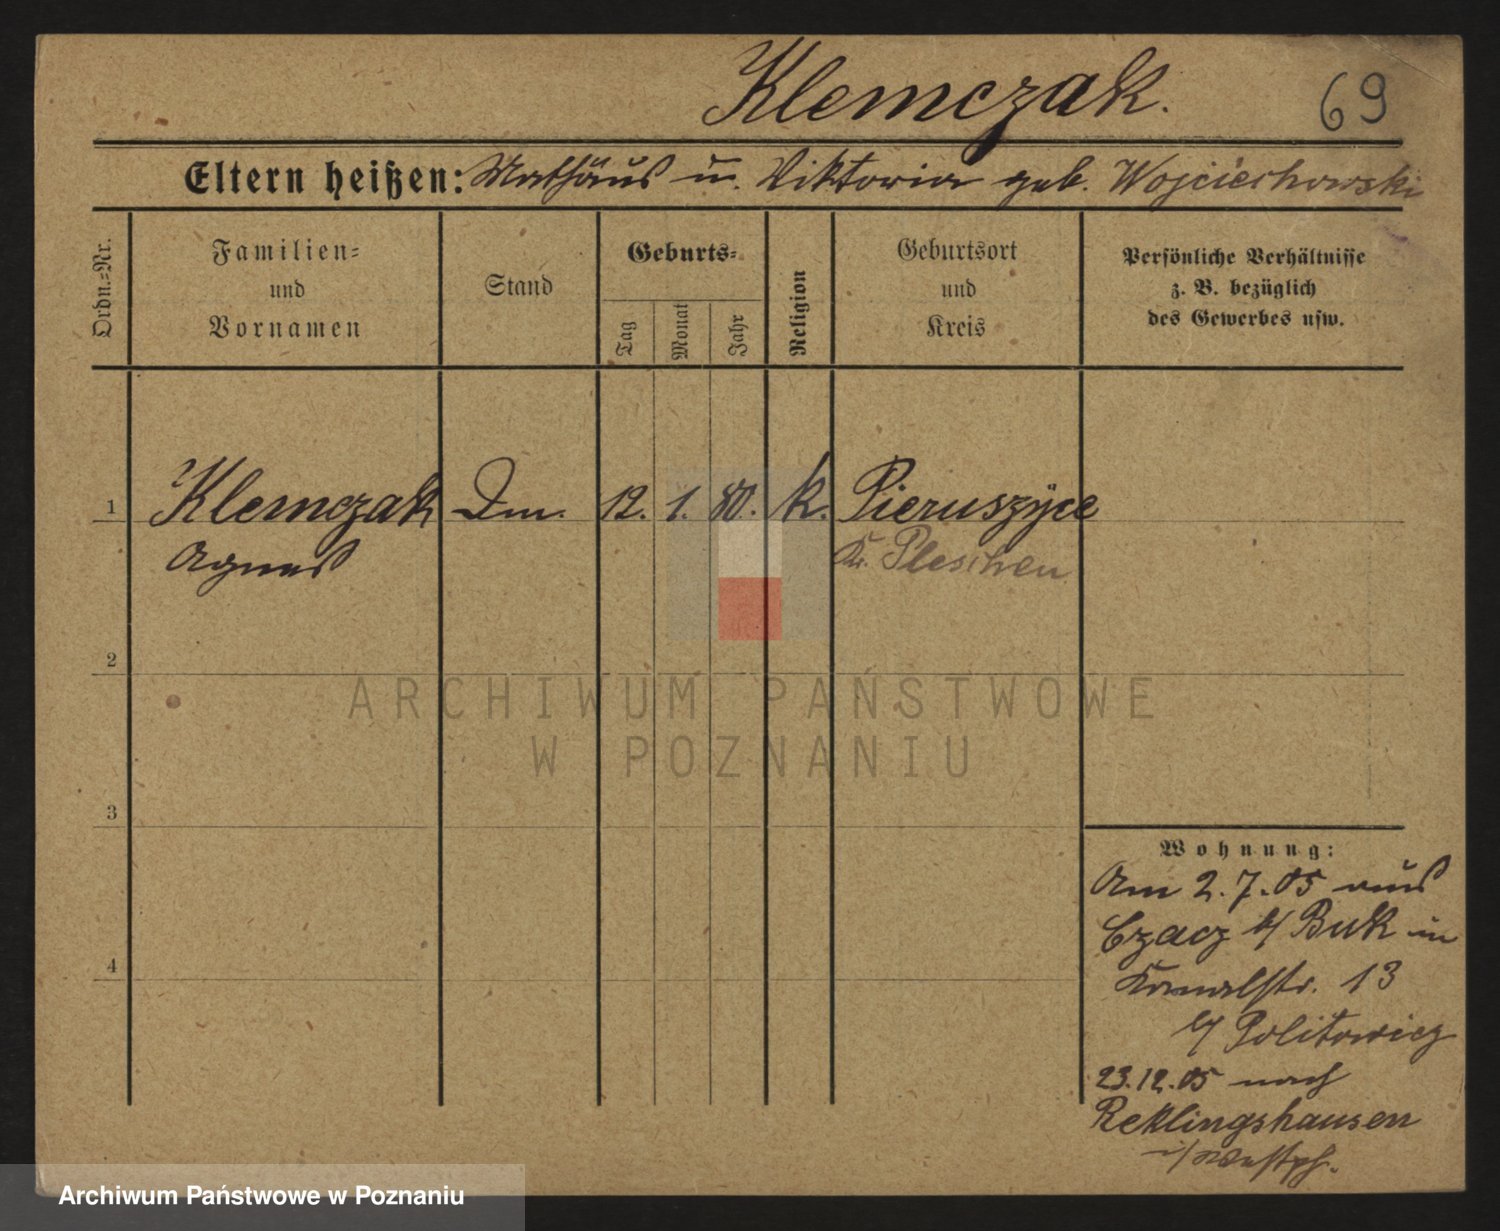 Klemczak.
69
Eltern heißen: Mathäus u. Viktoria geb. Wojciechowski
Ordn.-Nr.
Familien-
und
Vornamen
Stand
Geburts-
Tag
Monat
Jahr
Religion
Geburtsort
und
Kreis
Persönliche Verhältnisse
z. B. bezüglich
des Gewerbes usw.
1 Klemczak Dm. 12. 1. 80. k. Pieruszyce
Agnes Kr. Pleschen
2
ARCHIWUM PAŃSTWOWE
W POZNANIU
3
4
Wohnung:
Am 2.7.05 aus
Czacz b/ Buk in
Kanalstr. 13
b/ Politowicz
23.12.05 nach
Reklingshausen
i/ Westph.
Archiwum Państwowe w Poznaniu